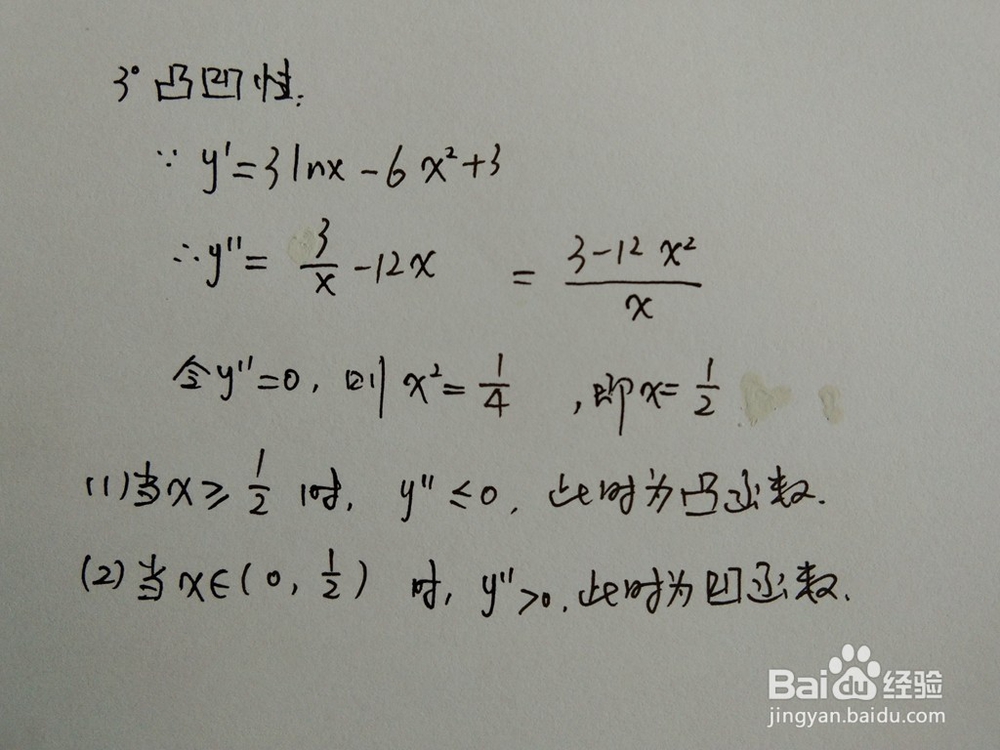 3° 凸凹性:
∵ y' = 3lnx - 6x² + 3
∴ y'' = 3/x - 12x = (3-12x²)/x
令y''=0, 则 x² = 1/4 , 即x = 1/2
(1) 当x ≥ 1/2 时, y'' ≤ 0, 此时为凸函数.
(2) 当x∈(0, 1/2) 时, y''>0, 此时为凹函数.
Baidu 经验
jingyan.baidu.com